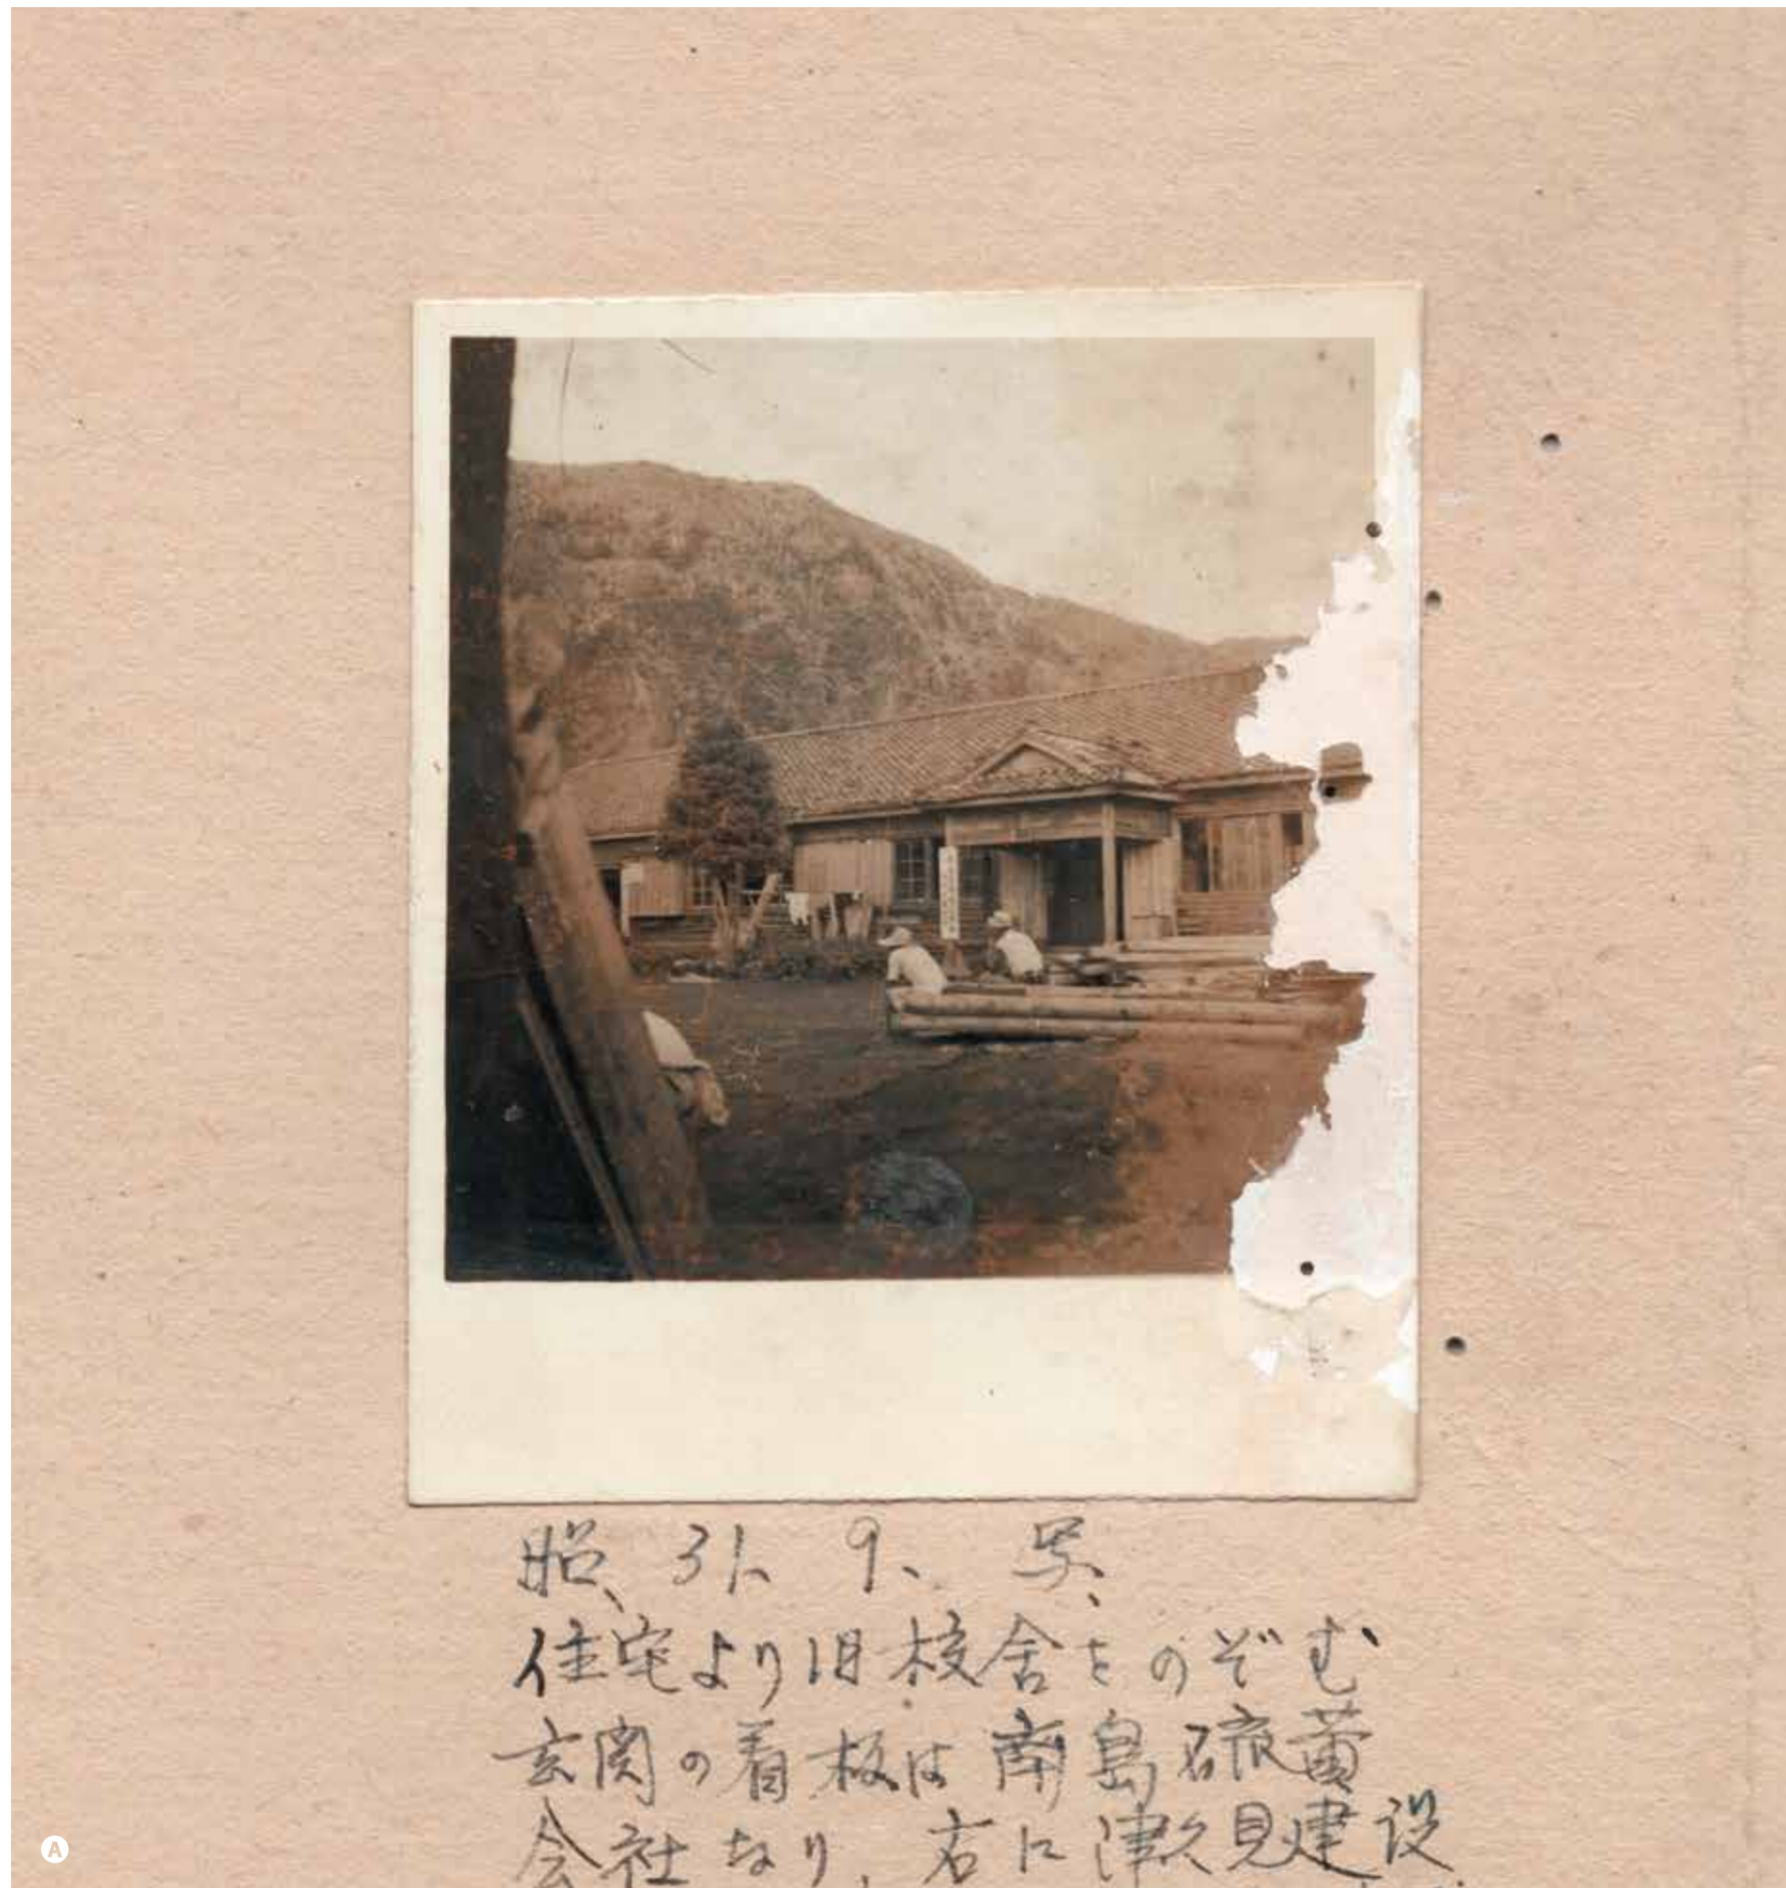 昭、31、9、写、
住宅より旧校舎をのぞむ
玄関の看板は南島硫黄
会社なり、右に津久見建設
A